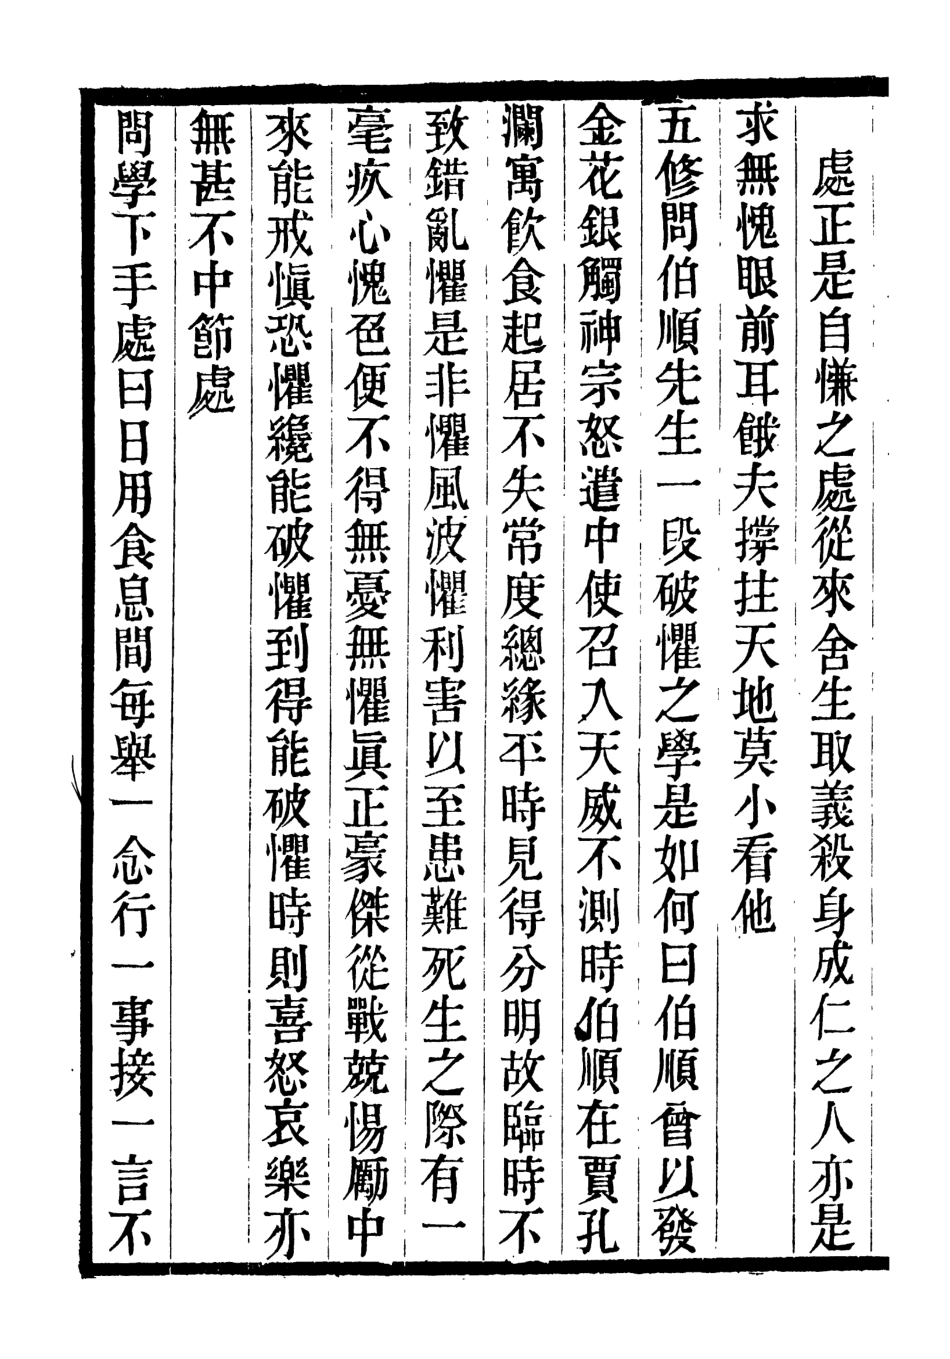 處正是自慊之處從來舍生取義殺身成仁之人亦是
求無愧眼前耳餓夫撐拄天地莫小看他
五修問伯順先生一段破懼之學是如何曰伯順曾以發
金花銀觸神宗怒遣中使召入天威不測時伯順在賈孔
瀾寓飲食起居不失常度總緣平時見得分明故臨時不
致錯亂懼是非懼風波懼利害以至患難死生之際有一
毫疚心愧色便不得無憂無懼眞正豪傑從戰兢惕勵中
來能戒愼恐懼纔能破懼到得能破懼時則喜怒哀樂亦
無甚不中節處
問學下手處曰日用食息間每舉一念行一事接一言不